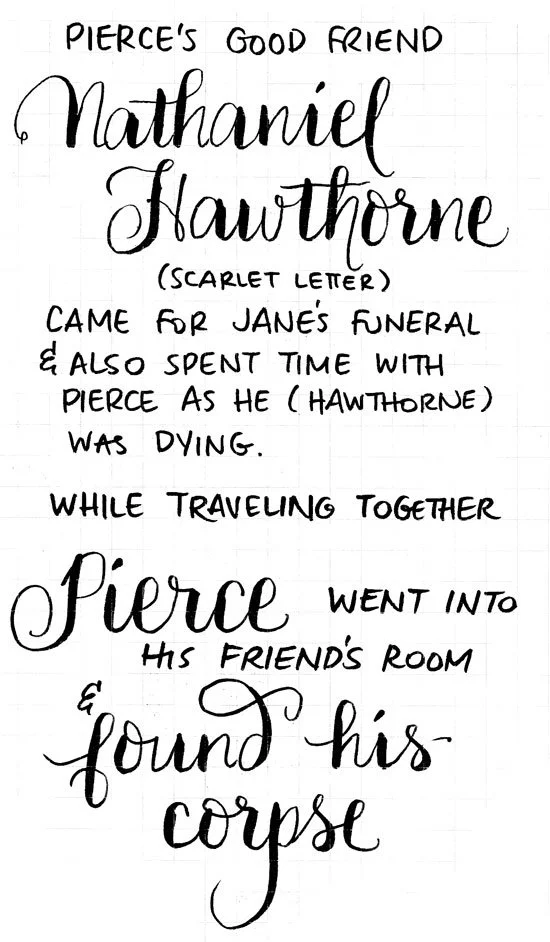 PIERCE'S GOOD FRIEND
Nathaniel
Hawthorne
(SCARLET LETTER)
CAME FOR JANE'S FUNERAL
& ALSO SPENT TIME WITH
PIERCE AS HE (HAWTHORNE)
WAS DYING.
WHILE TRAVELING TOGETHER
Pierce WENT INTO
HIS FRIEND'S ROOM
& found his
corpse